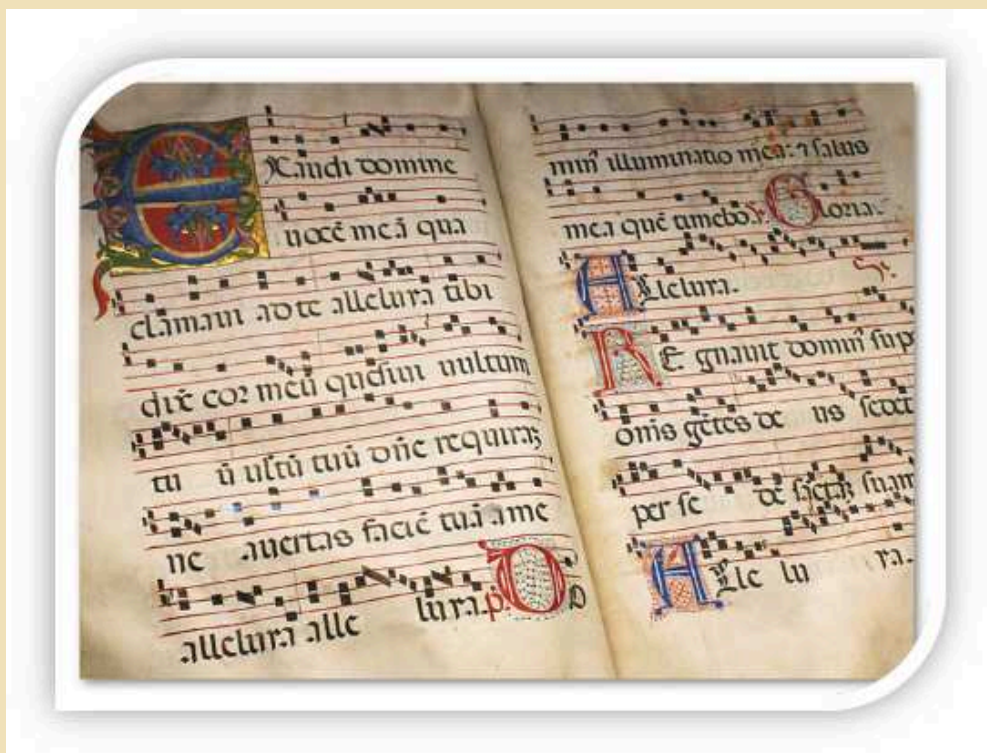 EXaudi domine
uocē meā qua
clamaui ad te alleluya tibi
dix̄ cor meū quesiui uultum
tu ū ultū tuū dn̄e requiraꝫ
ne auertas faciē tuā a me
alleluya alle luya. p̄. D D
min̄ illuminatio mea: ⁊ salus
mea quē timebo. Gloria.
ALleluya.
RE gnauit domin̄ sup
om̄s gētes de us sedet
per se dē suam
ALle lu ya.